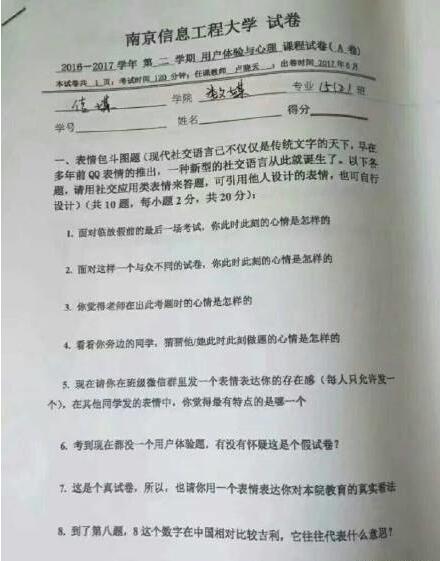 南京信息工程大学 试卷
2016－2017学年 第 二 学期 用户体验与心理 课程试卷( A 卷)
本试卷共 1 页；考试时间 120 分钟；任课教师 卢晓天 ；出卷时间 2017 年 6 月
信媒 学院 数媒 专业 1512 班
学号 姓名 得分
一、表情包斗图题（现代社交语言已不仅仅是传统文字的天下，早在
多年前 QQ 表情的推出，一种新型的社交语言从此就诞生了。以下各
题，请用社交应用类表情来答题，可引用他人设计的表情，也可自行
设计）（共 10 题，每小题 2 分，共 20 分）：
1. 面对临放假前的最后一场考试，你此时此刻的心情是怎样的
2. 面对这样一个与众不同的试卷，你此时此刻的心情是怎样的
3. 你觉得老师在出此考题时的心情是怎样的
4. 看看你旁边的同学，猜猜他/她此时此刻做题的心情是怎样的
5. 现在请你在班级微信群里发一个表情表达你的存在感（每人只允许发一
个），在其他同学发的表情中，你觉得最有特点的是哪一个
6. 考到现在都没一个用户体验题，有没有怀疑这是个假试卷？
7. 这是个真试卷，所以，也请你用一个表情表达你对本院教育的真实看法
8. 到了第八题，8 这个数字在中国相对比较吉利，它往往代表什么意思？